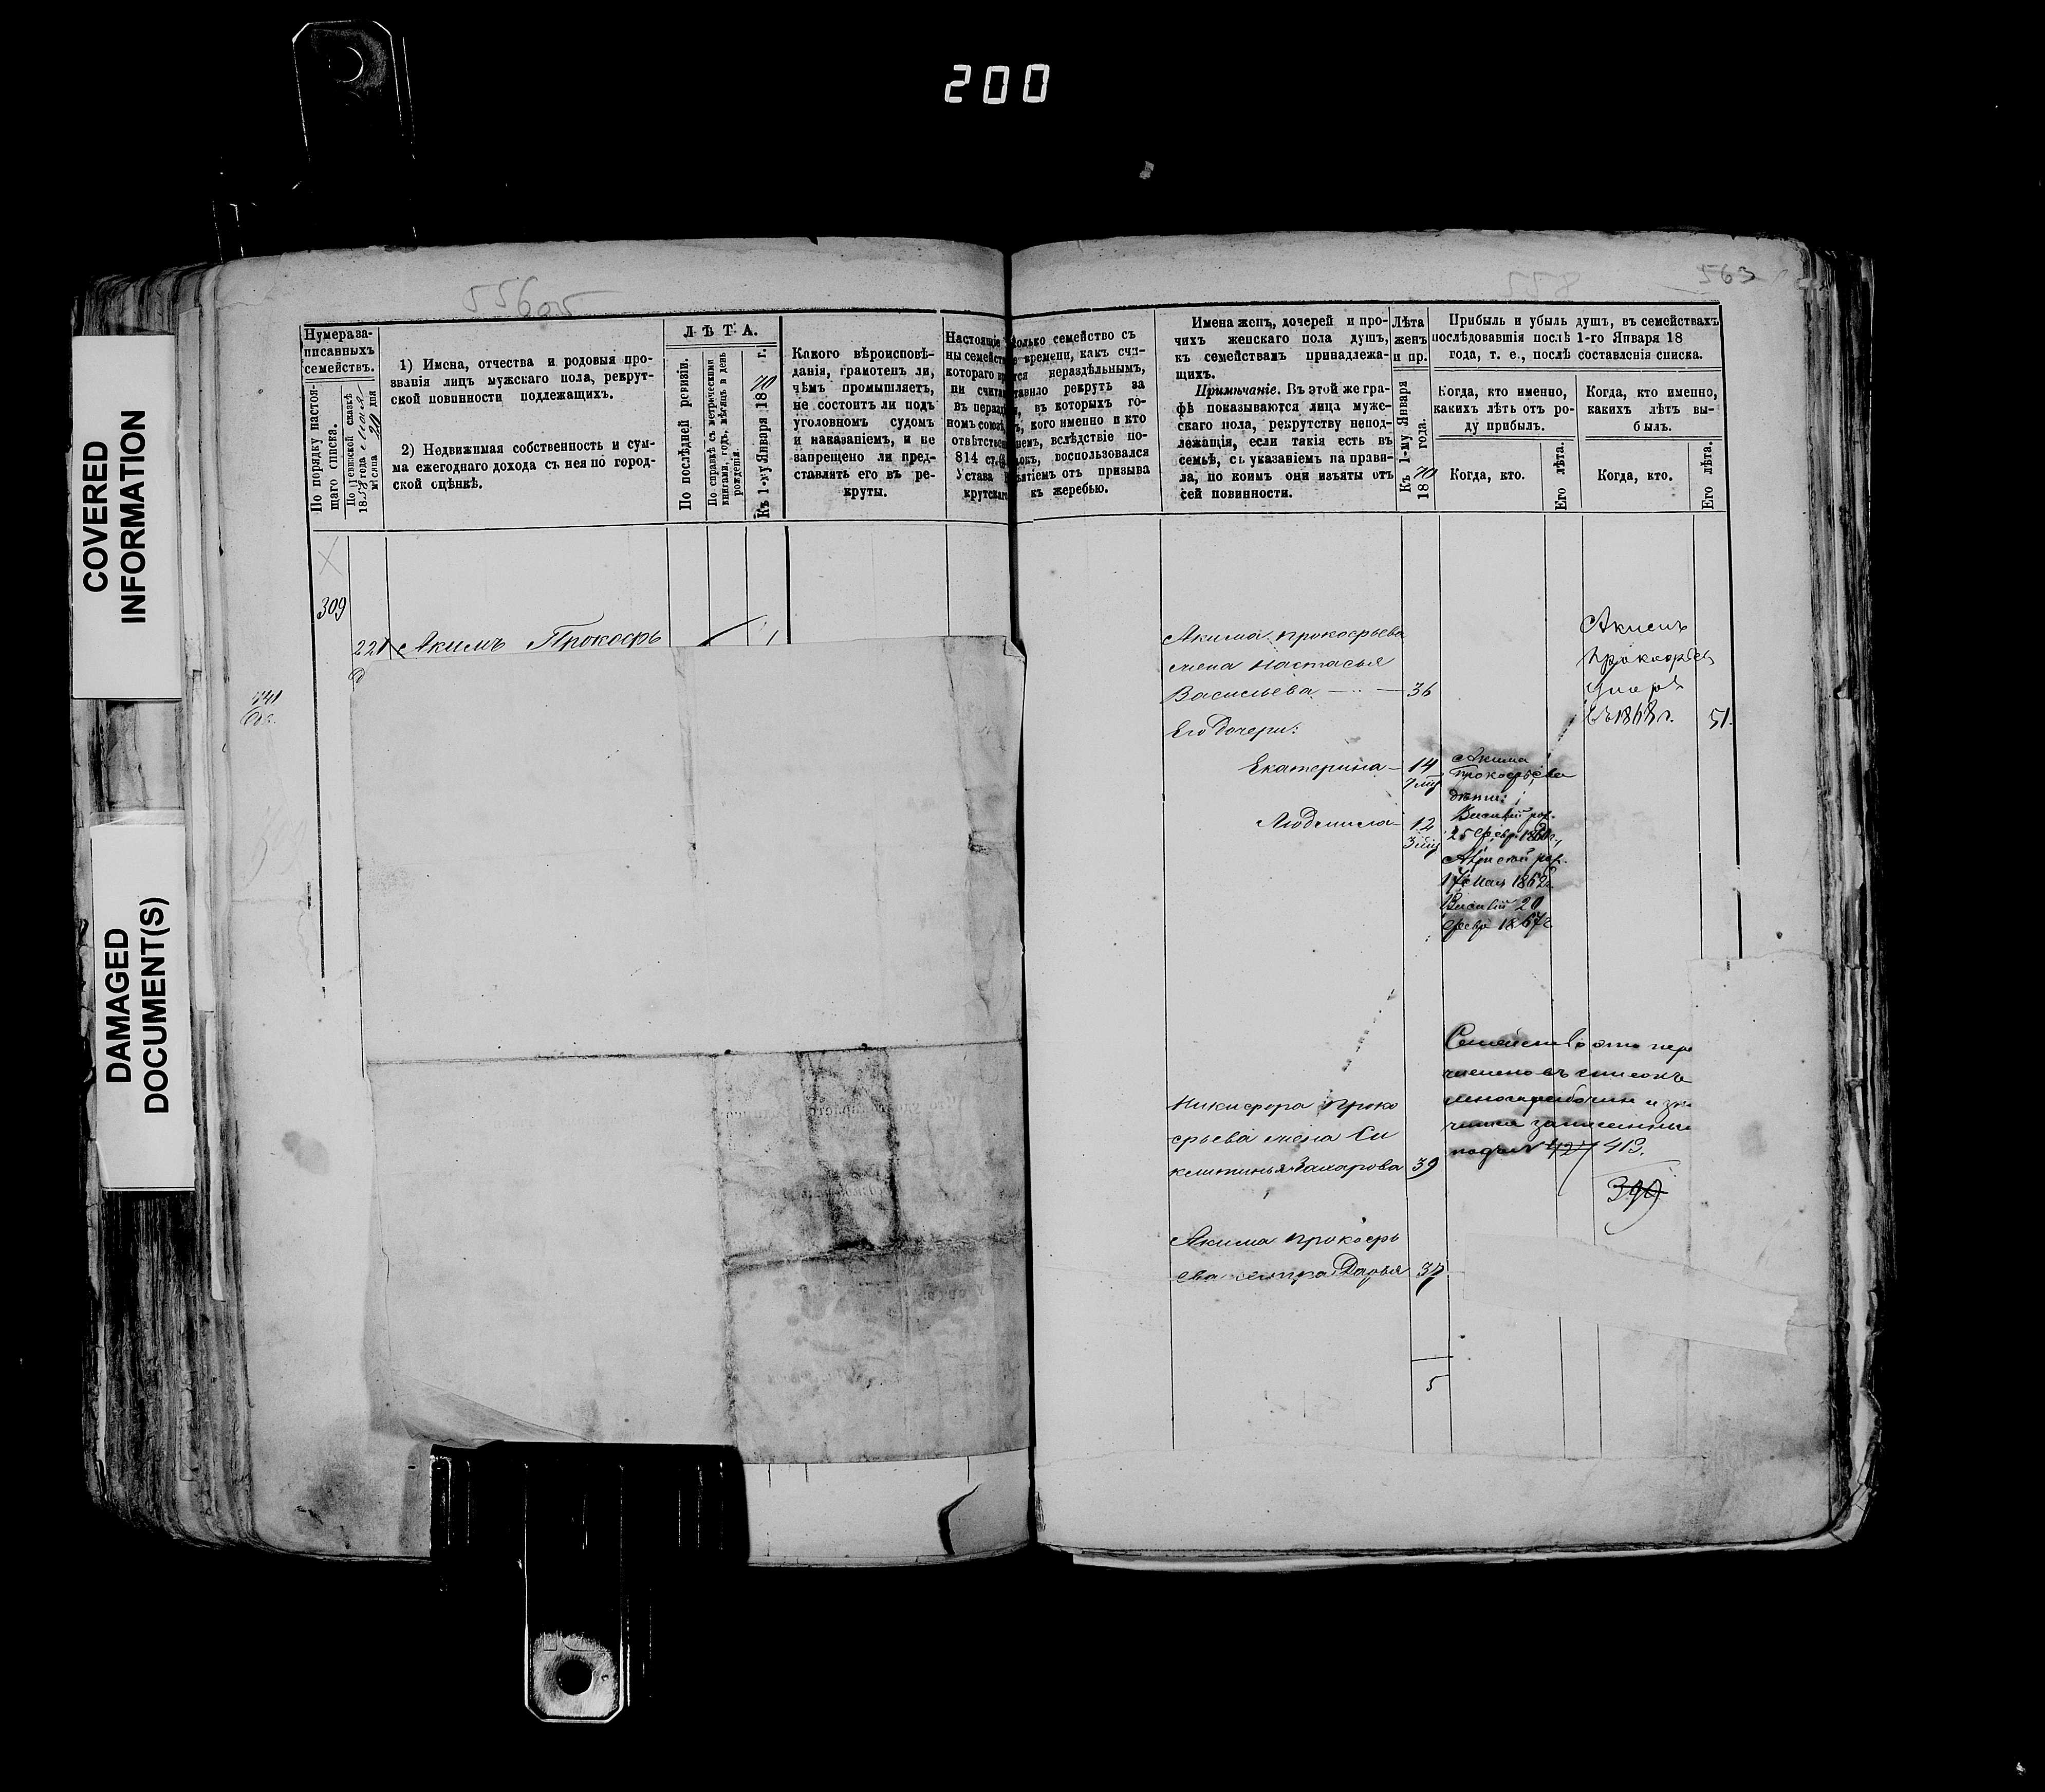 200
COVERED
INFORMATION
DAMAGED
DOCUMENT(S)
556об
Нумера за-
писанныхъ
семействъ.
По порядку настоя-
щаго списка.
По ревизской сказкѣ
1858 года
мѣсяца 29 дня
1) Имена, отчества и родовыя про-
званія лицъ мужскаго пола, рекрут-
ской повинности подлежащихъ.
2) Недвижимая собственность и сум-
ма ежегоднаго дохода съ нея по город-
ской оцѣнкѣ.
Л Ѣ Т А.
По послѣдней ревизіи.
По справкѣ съ метрическими
книгами, годъ, мѣсяцъ и день
рожденія.
Къ 1-му Января 1870 г.
Какого вѣроисповѣ-
данія, грамотенъ ли,
чѣмъ промышляетъ,
не состоитъ ли подъ
уголовнымъ судомъ
и наказаніемъ, и не
запрещено ли пред-
ставлять его въ ре-
круты.
Настоящіе
ны семейств
котораго вр
ни счита
въ нераз
номъ союзѣ
отвѣтствен
814 ст.
Устава
крутскаго
309
221 Акимъ Прокофь
558
563
олько семейство съ
времени, какъ счи-
тся нераздѣльнымъ,
ставило рекрутъ за
, въ которыхъ го-
ъ, кого именно и кто
емъ, вслѣдствіе по-
окъ, воспользовался
ъятіемъ отъ призыва
къ жеребью.
Имена женъ, дочерей и про-
чихъ женскаго пола душъ,
къ семействамъ принадлежа-
щихъ.
Примѣчаніе. Въ этой же гра-
фѣ показываются лица муже-
скаго пола, рекрутству непод-
лежащія, если такія есть въ
семьѣ, съ указаніемъ на прави-
ла, по коимъ они изъяты отъ
сей повинности.
Лѣта
женъ
и пр.
Къ 1-му Января
1870 года.
Прибыль и убыль душъ, въ семействахъ
послѣдовавшія послѣ 1-го Января 18
года, т. е., послѣ составленія списка.
Когда, кто именно,
какихъ лѣтъ отъ ро-
ду прибылъ.
Когда, кто именно,
какихъ лѣтъ вы-
былъ.
Когда, кто.
Его лѣта.
Когда, кто.
Его лѣта.
Акима Прокофьева
жена Настасья
Васильева — 36
Его дочери:
Екатерина — 14
7 мѣ
Людмила — 12
3 мѣ
Акима
Прокофьева
дѣти:
Василій рож.
25 Февр. 1860 г.,
рож.
17 Мая 1862 г.
Василій 20
Февр 1867 г.
Акимъ
Прокофьев
умеръ
въ 1868 г. 51.
Семейство это пере
числено въ списокъ
записанные
подъ № 427 413.
390
Никифора Проко
фьева жена Си
клитинья Захарова 39
Акима Прокофь
ева сестра Дарья 37
5